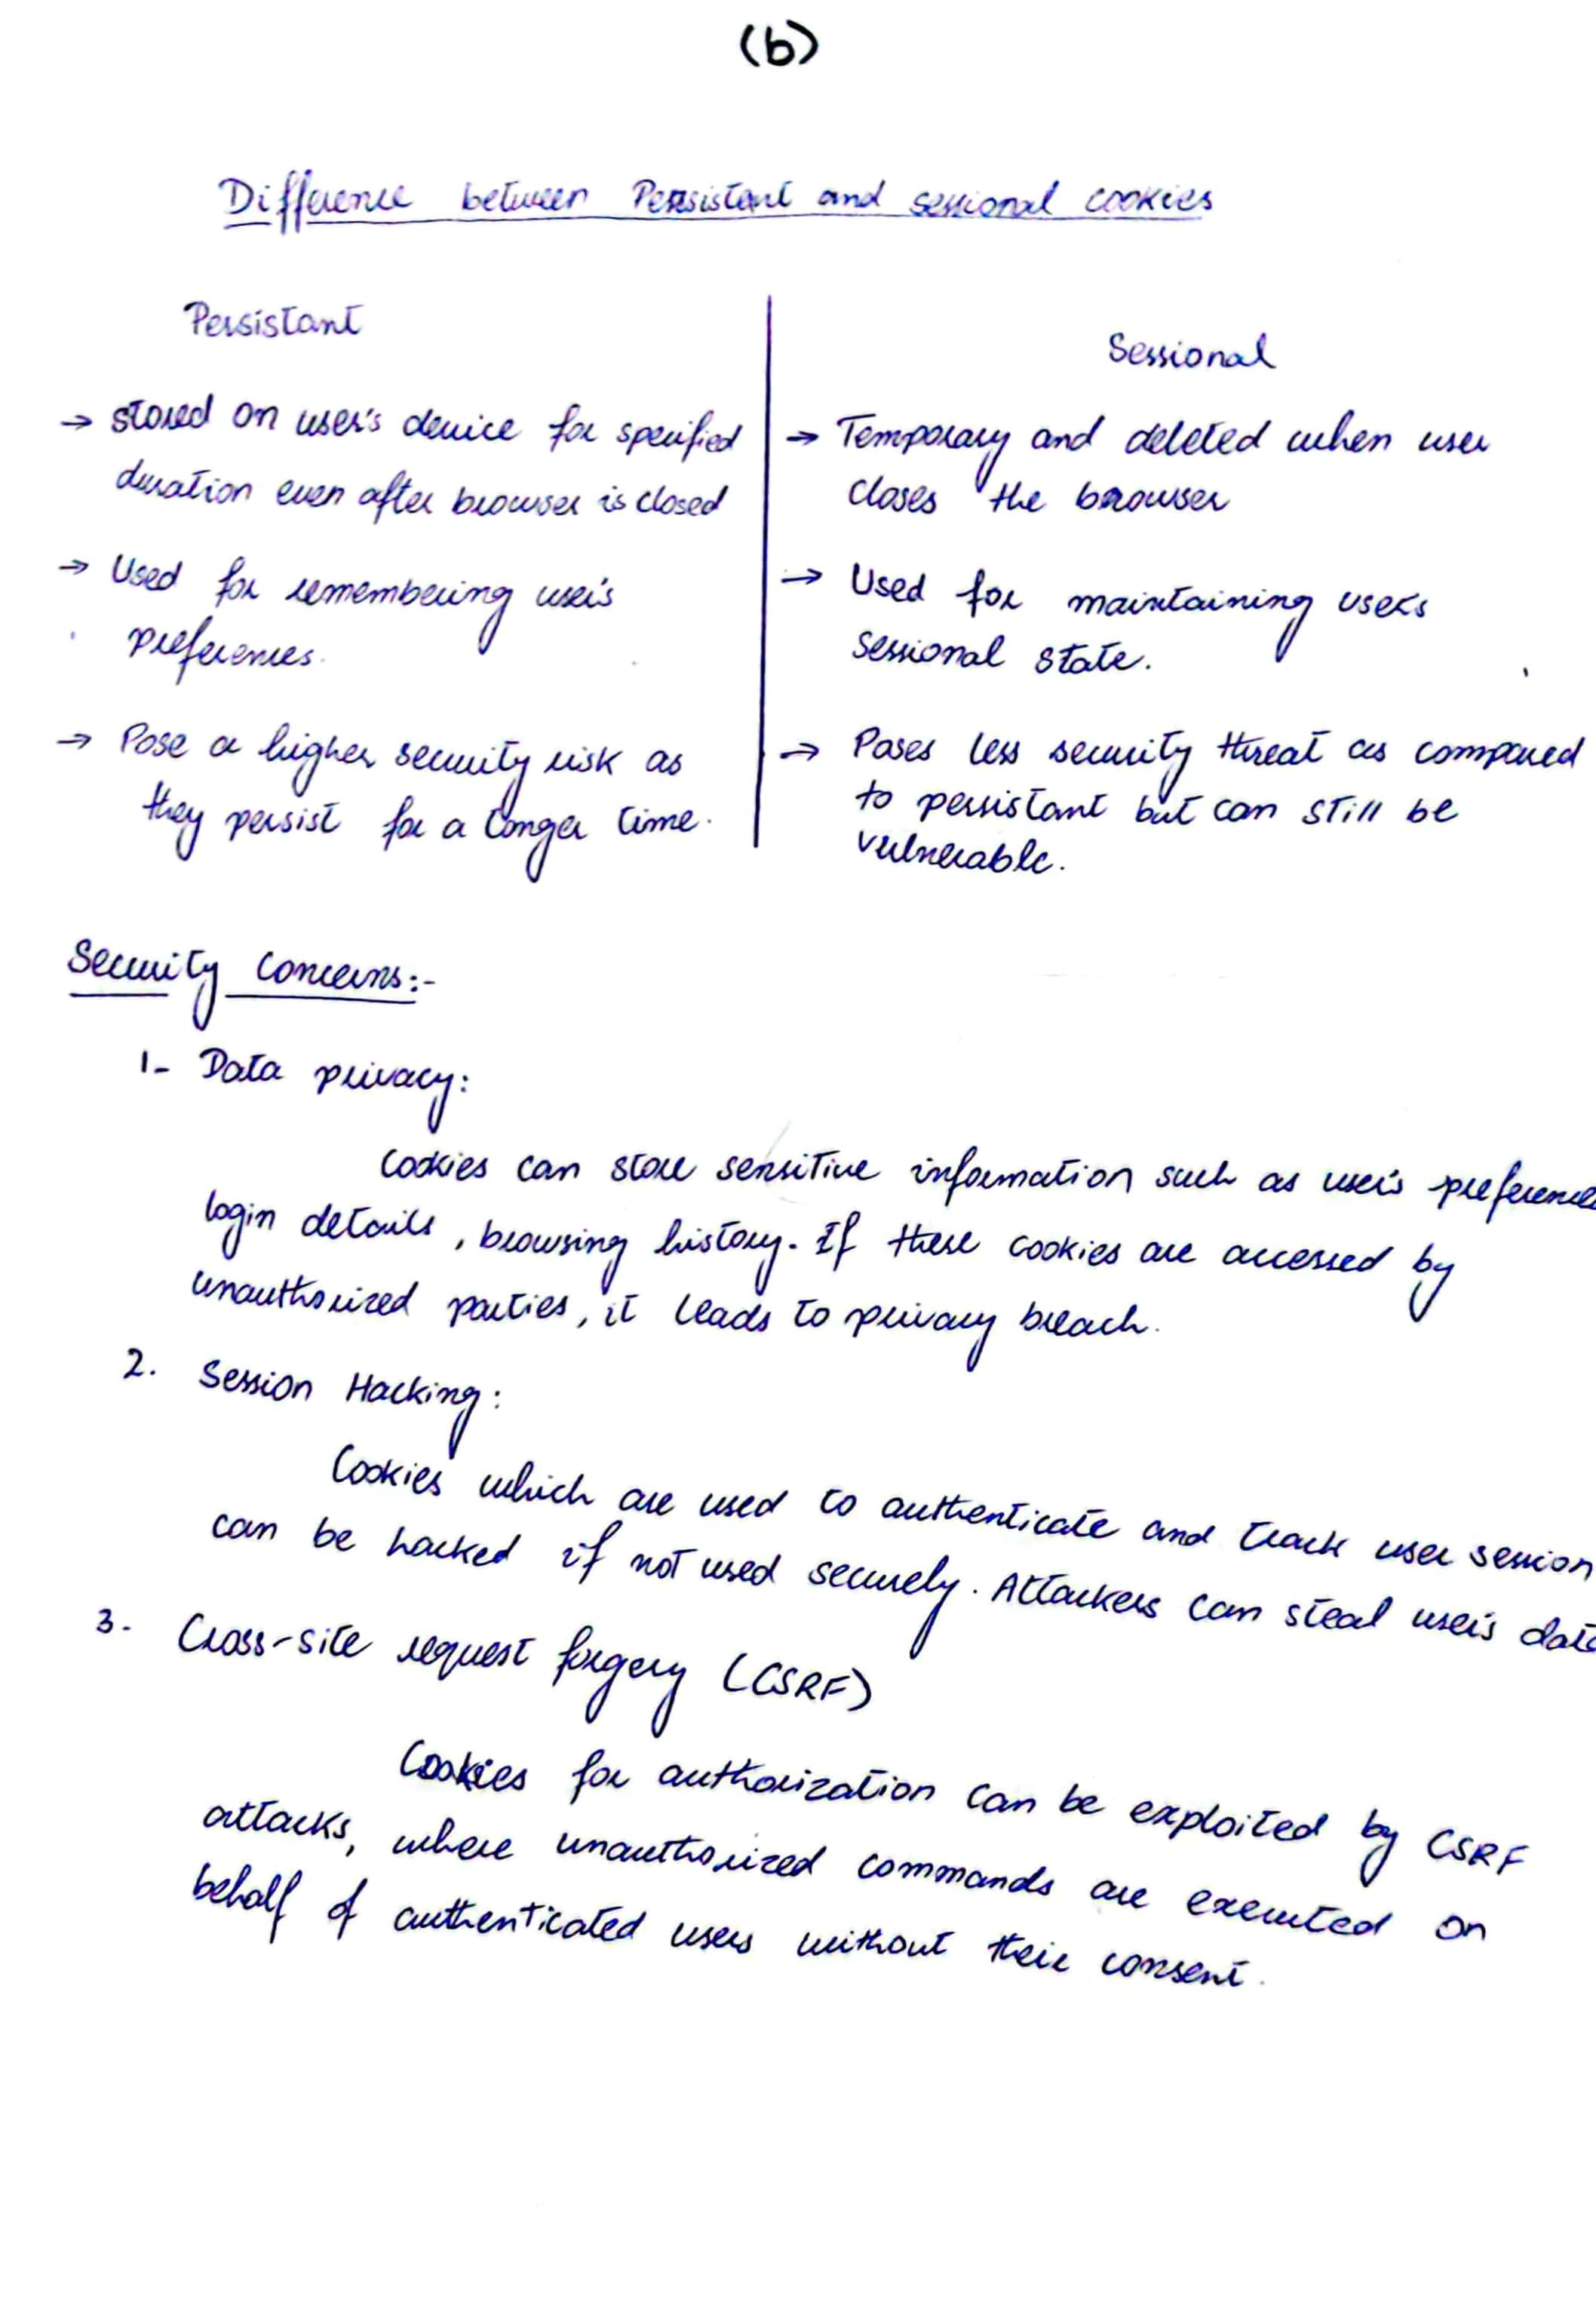 (b)
Difference between Persistent and sessional cookies
Persistant
Sessional
→ stored on user's device for specified
duration even after browser is closed
→ Used for remembering user's
preferences.
→ Pose a higher security risk as
they persist for a longer time.
→ Temporary and deleted when user
closes the browser
→ Used for maintaining users
sessional state.
→ Poses less security threat as compared
to persistant but can still be
vulnerable.
Security Concerns:-
1- Data privacy:
Cookies can store sensitive information such as user's preference
login details, browsing history. If these cookies are accessed by
unauthorized parties, it leads to privacy breach.
2. Session Hacking:
Cookies which are used to authenticate and track user session
can be hacked if not used securely. Attackers can steal user's data
3. Cross-site request forgery (CSRF)
Cookies for authorization can be exploited by CSRF
attacks, where unauthorized commands are executed on
behalf of authenticated users without their consent.